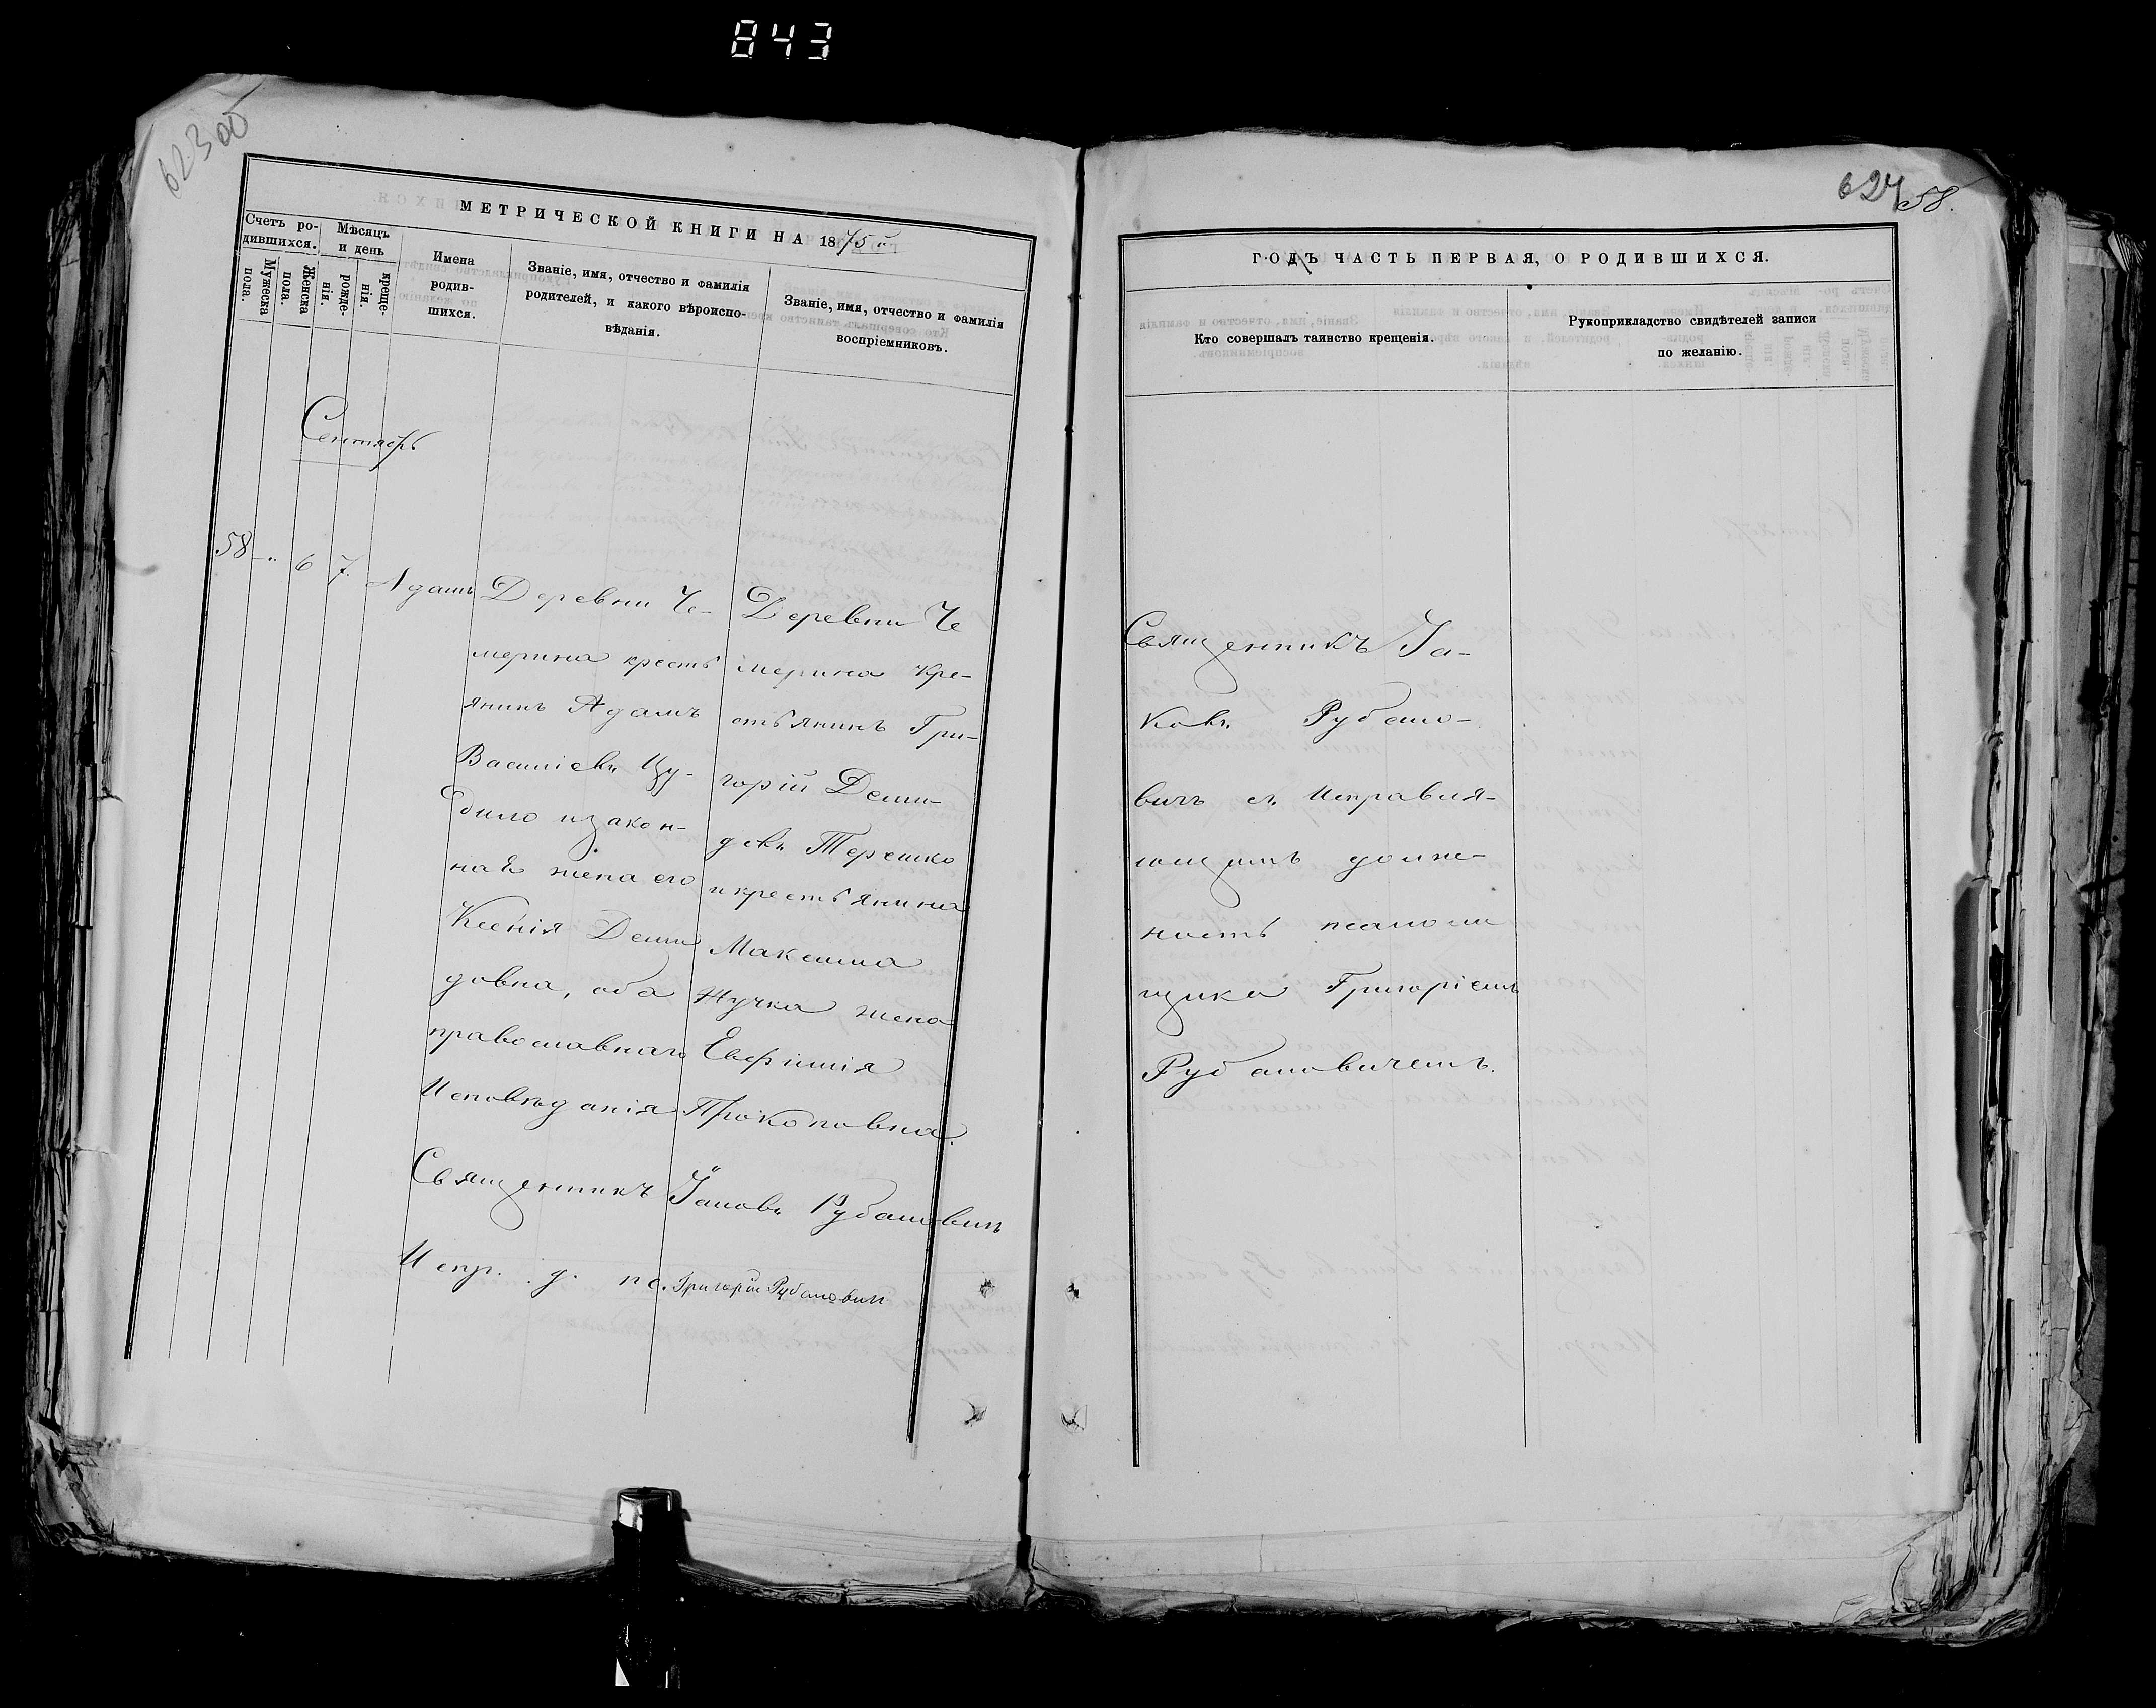 843
623 об
62458.
МЕТРИЧЕСКОЙ КНИГИ НА 1875 г
Счетъ ро-
дившихся.
Мужеска
пола.
Женска
пола.
Мѣсяцъ
и день
рожде-
нія.
креще-
нія.
Имена
родив-
шихся.
Званіе, имя, отчество и фамилія
родителей, и какого вѣроиспо-
вѣданія.
Званіе, имя, отчество и фамилія
воспріемниковъ.
Сентябрь
58 - " 6 7. Адамъ
Деревни Че-
мерина кресть
янинъ Адамъ
Василіевъ Цу-
било и закон-
ная жена его
Ксенія Деми
довна, оба
православнаго
Исповѣданія
Деревни Че
мерина Кре-
стьянинъ Гри-
горій Деми-
довъ Терешко
и крестьянина
Максима
Жучка жена
Евфимія
Прокоповна.
Священникъ Іаковъ Рубановичъ
Испр. д. пс. Григорій Рубановичъ
ГОДЪ ЧАСТЬ ПЕРВАЯ, О РОДИВШИХСЯ.
Кто совершалъ таинство крещенія.
Рукоприкладство свидѣтелей записи
по желанію.
Священникъ Іа-
ковъ Рубано-
вичъ съ Исправля-
ющимъ долж-
ность псаломщ
щика Григоріемъ
Рубановичемъ.